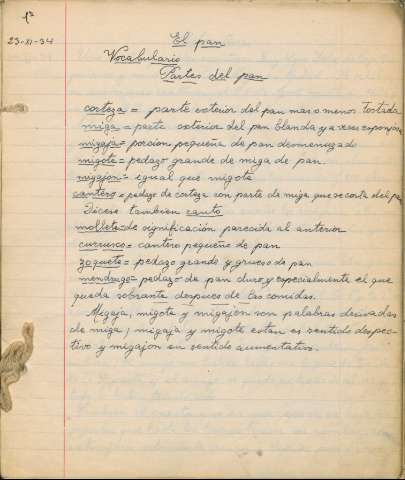 1º
23-XI-34
El pan
Vocabulario
Partes del pan
corteza = parte exterior del pan mas o menos tostada
miga = parte exterior del pan blanda y a veces esponjosa
migaja = porcion pequeña de pan desmenuzado
migote = pedazo grande de miga de pan.
migajon = igual que migote
cantero = pedazo de corteza con parte de miga que se corta del pan
Dicese tambien canto
mollete = de significación parecida al anterior
currusco = cantero pequeño de pan
zoquete = pedazo grande y grueso de pan
mendrugo = pedazo de pan duro y especialmente el que
queda sobrante despues de las comidas.
Megaja, migote y migajon son palabras derivadas
de miga, migaja y migote estan es sentido despec-
tivo y migajon en sentido aumentativo.